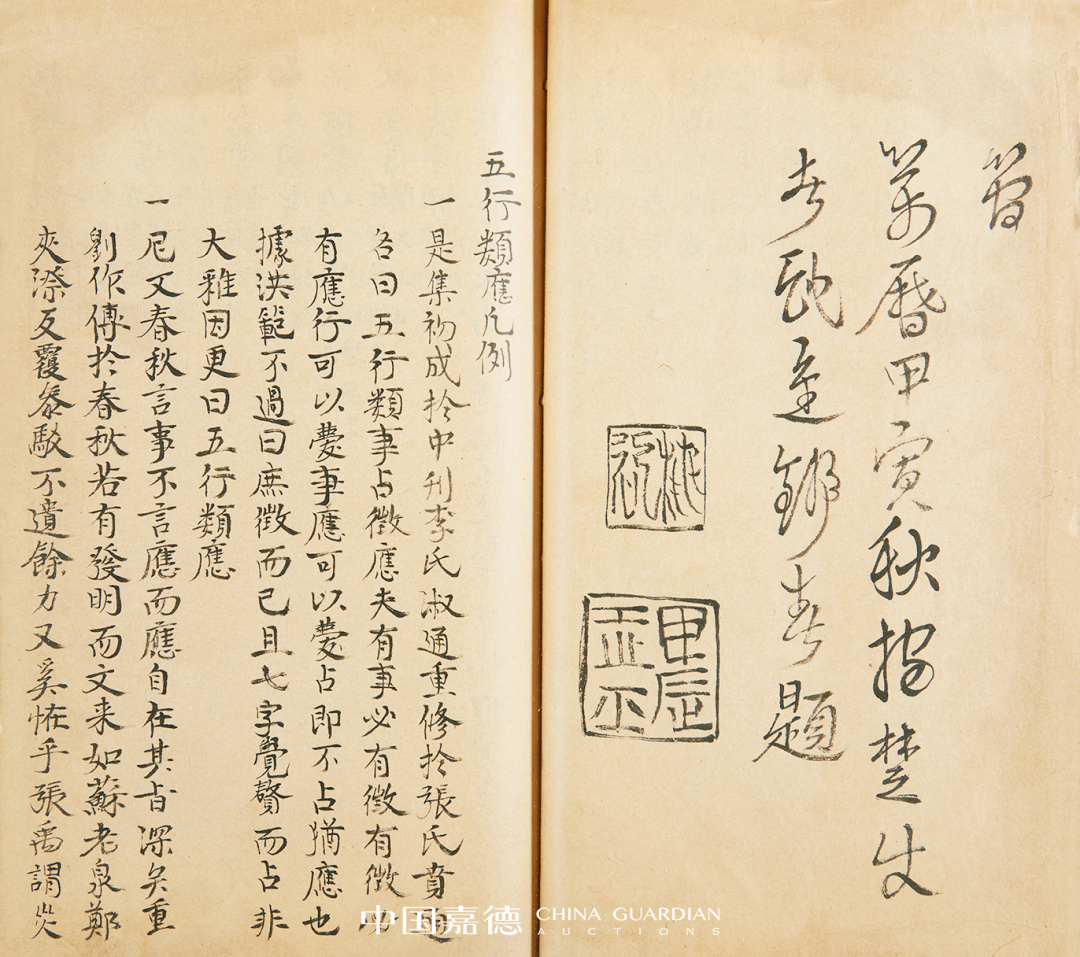 萬曆甲寅秋楚史
題
甲辰
五行類應凡例
一是集初成於中刊李氏淑通重修於張氏賁
名曰五行類事占徵應夫有事必有徵有徵必
有應行可以慶事應可以慶占即不占猶應也
據洪範不過曰庶徵而已且七字覺贅而占非
大雅因更曰五行類應
一尼父春秋言事不言應而應自在其旨深矣董
劉作傳於春秋若有發明而文来如蘇老泉鄭
夾漈反覆叅駁不遺餘力又奚恠乎張禹謂災
中国嘉德 CHINA GUARDIAN
AUCTIONS